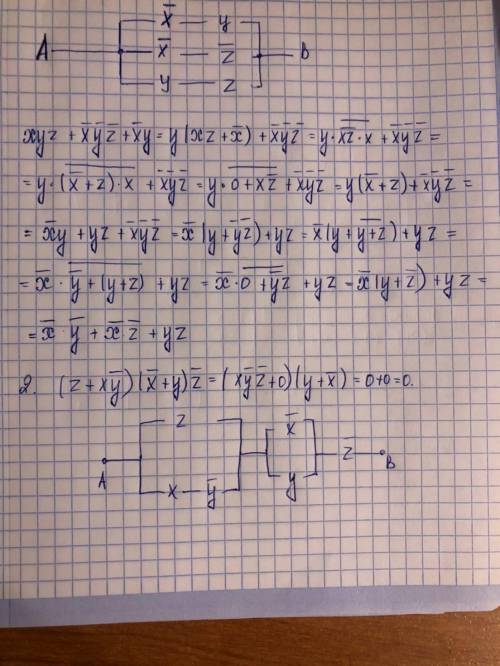 x̅ — y
A — x̅ — z̅ — B
y — z
xyz + x̅y̅z̅ + x̅y = y(xz + x̅) + x̅y̅z̅ = y · \overline{\overline{xz} · x} + x̅y̅z̅ =
= y · \overline{(x̅ + z̅) · x} + x̅y̅z̅ = y · \overline{0 + xz̅} + x̅y̅z̅ = y(x̅ + z) + x̅y̅z̅ =
= x̅y + yz + x̅y̅z̅ = x̅(y + y̅z̅) + yz = x̅(y + \overline{y + z}) + yz =
= x̅ · \overline{y̅ · (y + z)} + yz = x̅ · \overline{0 + y̅z} + yz = x̅(y + z̅) + yz =
= x̅ · y + x̅ · z̅ + yz
2. (z + xy̅)(x̅ + y)z̅ = (xy̅z̅ + 0)(y + x̅) = 0 + 0 = 0.
z x̅
A z̅ B
x — y̅ y